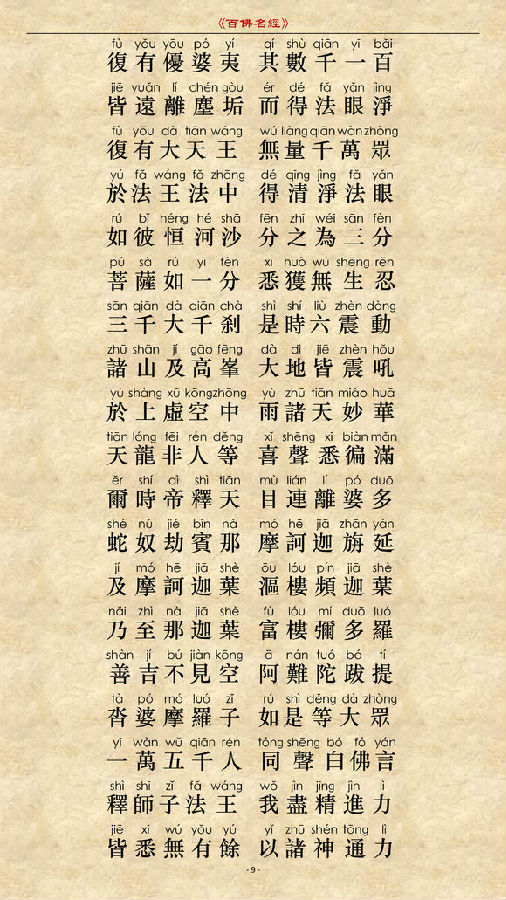 《百佛名經》
fù yǒu yōu pó yí qí shù qiān yī bǎi
復有優婆夷 其數千一百
jiē yuǎn lí chén gòu ér dé fǎ yǎn jìng
皆遠離塵垢 而得法眼淨
fù yǒu dà tiān wáng wú liàng qiān wàn zhòng
復有大天王 無量千萬眾
yú fǎ wáng fǎ zhōng dé qīng jìng fǎ yǎn
於法王法中 得清淨法眼
rú bǐ héng hé shā fēn zhī wéi sān fēn
如彼恒河沙 分之為三分
pú sà rú yī fēn xī huò wú shēng rěn
菩薩如一分 悉獲無生忍
sān qiān dà qiān chà shì shí liù zhèn dòng
三千大千剎 是時六震動
zhū shān jí gāo fēng dà dì jiē zhèn hǒu
諸山及高峯 大地皆震吼
yú shàng xū kōng zhōng yù zhū tiān miào huā
於上虛空中 雨諸天妙華
tiān lóng fēi rén děng xǐ shēng xī biàn mǎn
天龍非人等 喜聲悉徧滿
ěr shí dì shì tiān mù lián lí pó duō
爾時帝釋天 目連離婆多
shé nú jié bīn nà mó hē jiā zhān yán
蛇奴劫賓那 摩訶迦旃延
jí mó hē jiā shè ōu lóu pín jiā shè
及摩訶迦葉 漚樓頻迦葉
nǎi zhì nà jiā shè fù lóu mí duō luó
乃至那迦葉 富樓彌多羅
shàn jí bú jiàn kōng ā nán tuó bá tí
善吉不見空 阿難陀跋提
tà pó mó luó zǐ rú shì děng dà zhòng
沓婆摩羅子 如是等大眾
yī wàn wǔ qiān rén tóng shēng bó fó yán
一萬五千人 同聲白佛言
shì shī zǐ fǎ wáng wǒ jìn jīng jìn lì
釋師子法王 我盡精進力
jiē xī wú yǒu yú yǐ zhū shén tōng lì
皆悉無有餘 以諸神通力
- 9 -